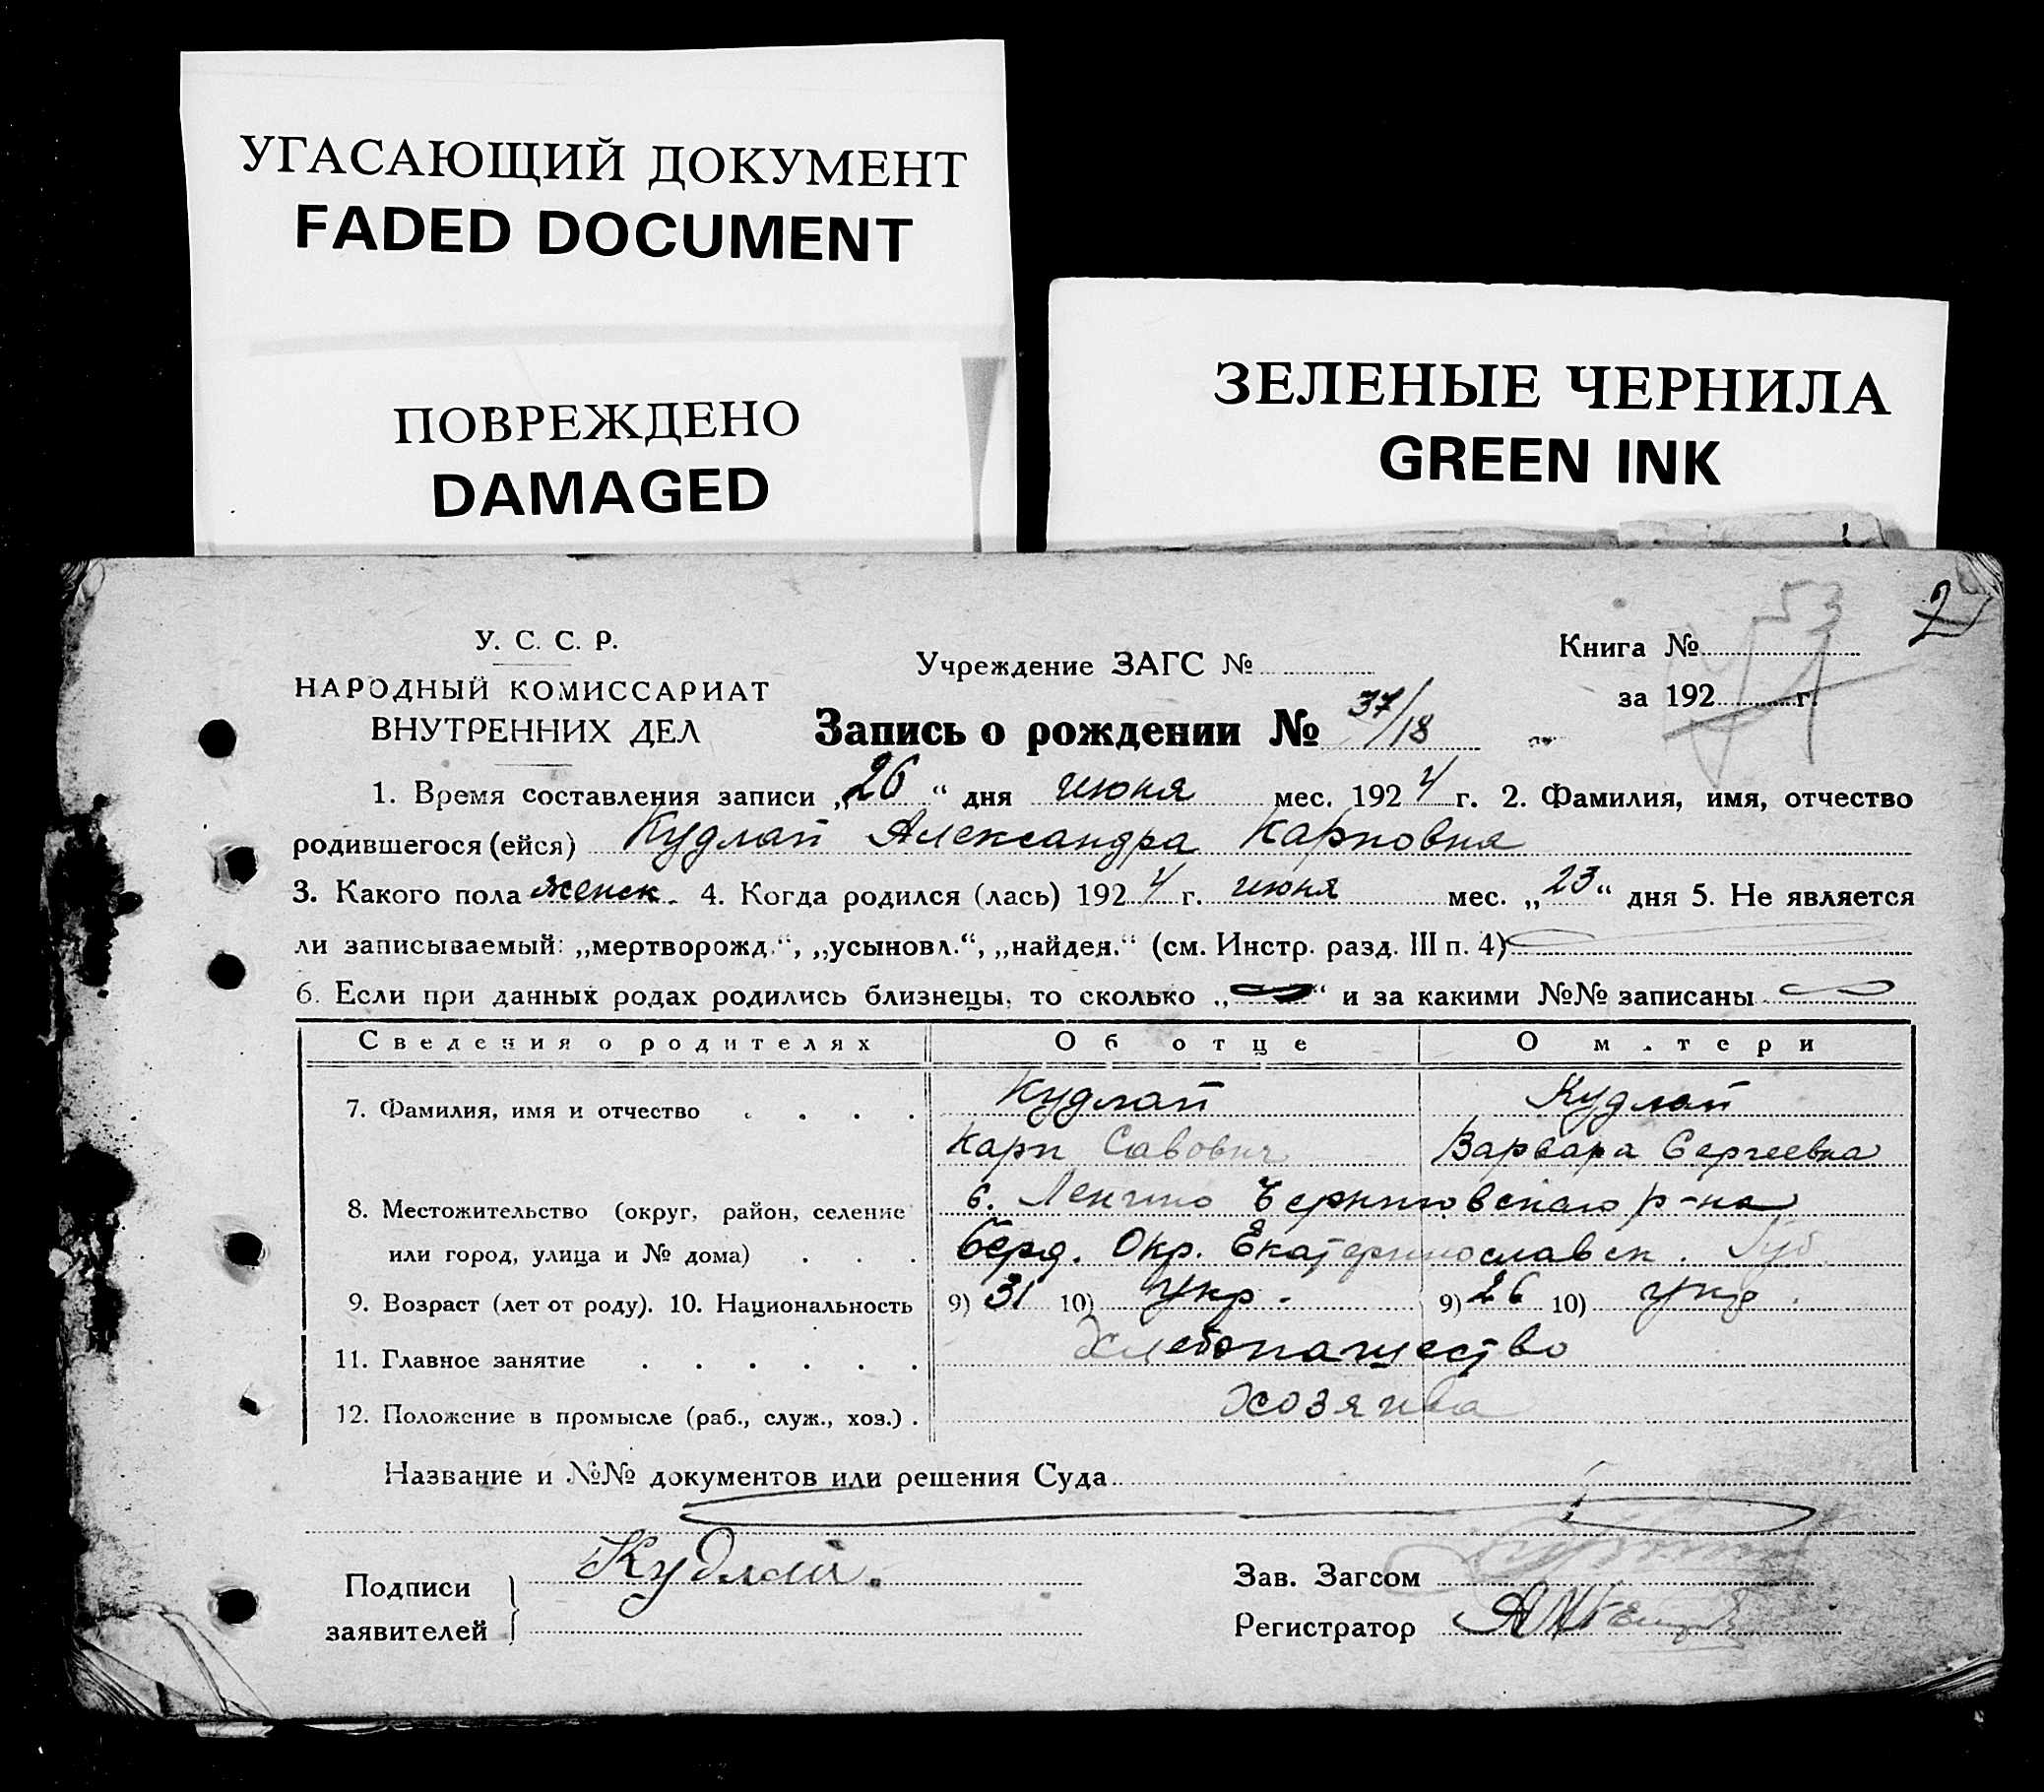 УГАСАЮЩИЙ ДОКУМЕНТ
FADED DOCUMENT
ПОВРЕЖДЕНО
DAMAGED
ЗЕЛЕНЫЕ ЧЕРНИЛА
GREEN INK
53
2
У. С. С. Р.
НАРОДНЫЙ КОМИССАРИАТ
ВНУТРЕННИХ ДЕЛ
Учреждение ЗАГС №
Книга №
за 192 г.
Запись о рождении № 37/18
1. Время составления записи „26“ дня июня мес. 1924 г. 2. Фамилия, имя, отчество
родившегося (ейся) Кудлай Александра Карповна
3. Какого пола женск. 4. Когда родился (лась) 1924 г. июня мес. „23“ дня 5. Не является
ли записываемый: „мертворожд.“, „усыновл.“, „найден.“ (см. Инстр. разд. III п. 4)
6. Если при данных родах родились близнецы, то сколько „ “ и за какими №№ записаны
Сведения о родителях Об отце О м.тери
7. Фамилия, имя и отчество . . . . Кудлай Кудлай
Карп Савович Варвара Сергеевна
8. Местожительство (округ, район, селение с. Черниговского р-на
или город, улица и № дома) . . . Берд. Окр. Екатеринославск. Губ
9. Возраст (лет от роду). 10. Национальность 9) 31 10) Укр. 9) 26 10) укр.
11. Главное занятие . . . . . . Хлебопашество
12. Положение в промысле (раб., служ., хоз.) . Хозяева
Название и №№ документов или решения Суда
Подписи
заявителей
Кудлай.
Зав. Загсом
Регистратор